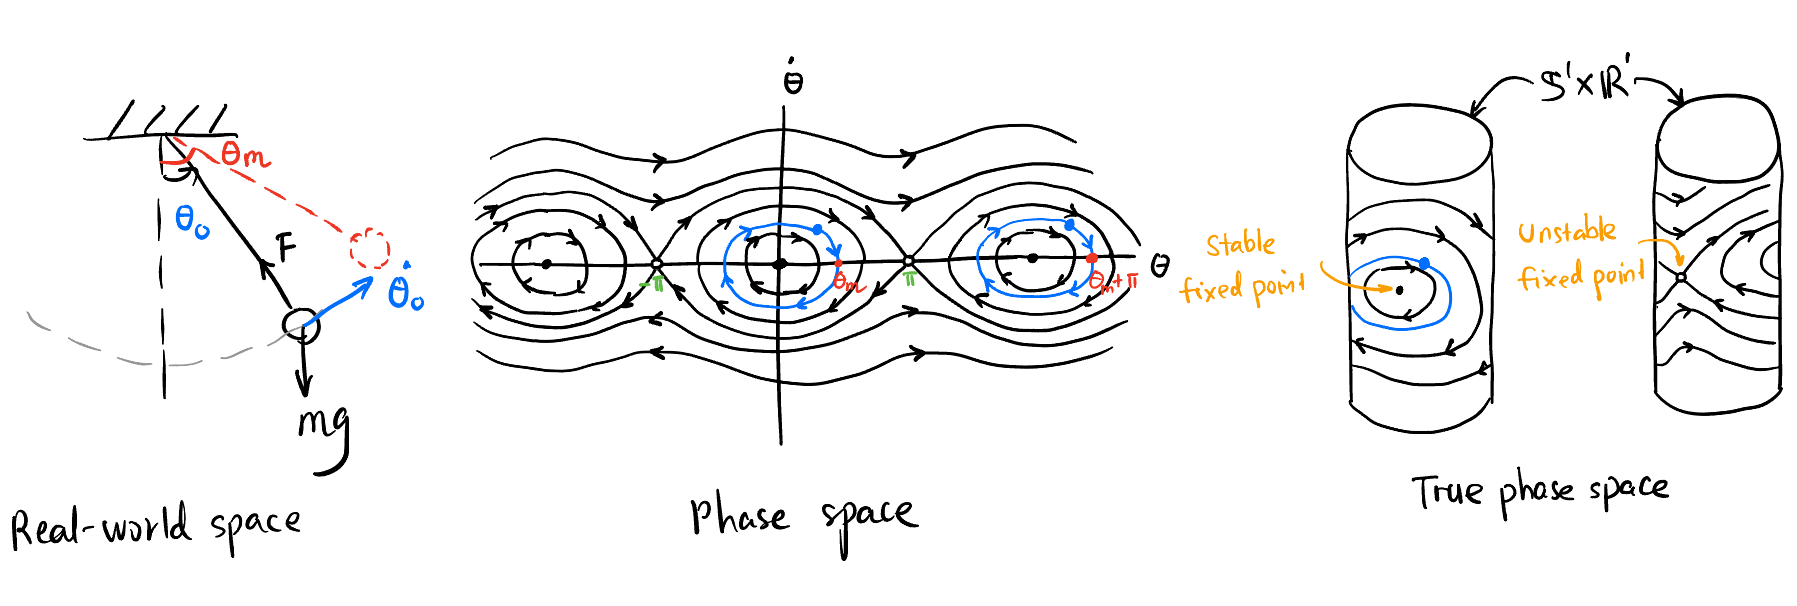 θm
θ₀
F
θ̇₀
mg
Real-world space
θ̇
θ
-π
θm
π
θm+π
Phase space
S¹×ℝ¹
Stable
fixed point
Unstable
fixed point
True phase space